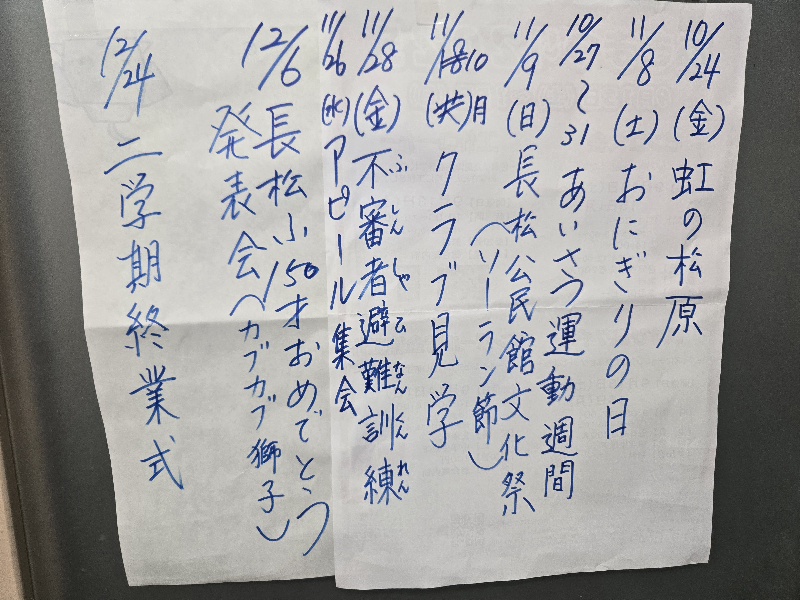 10/24(金)虹の松原
11/8(土)おにぎりの日
10/27〜31 あいさつ運動週間
11/9(日)長松公民館文化祭
(ソーラン節)
11/10 月 クラブ見学
11/28(金)不審者避難訓練
ふしんしゃひなんくんれん
11/26(水)アピール集会
12/6 長松小150才おめでとう
発表会(カブカブ獅子)
12/24 二学期終業式